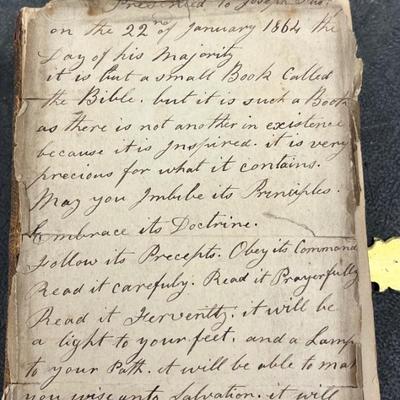 to Joseph
on the 22nd of January 1864 the
Day of his Majority
it is but a small Book Called
the Bible. but it is such a Book
as there is not another in existence
because it is Inspired. it is very
precious for what it contains.
May you Imbibe its Principles.
Embrace its Doctrine.
Follow its Precepts. Obey its Command
Read it carefuly. Read it Prayerfully
Read it Ferventty. it will be
a light to your feet. and a Lamp
to your Path. it will be able to mak
you wise unto Salvation. it will